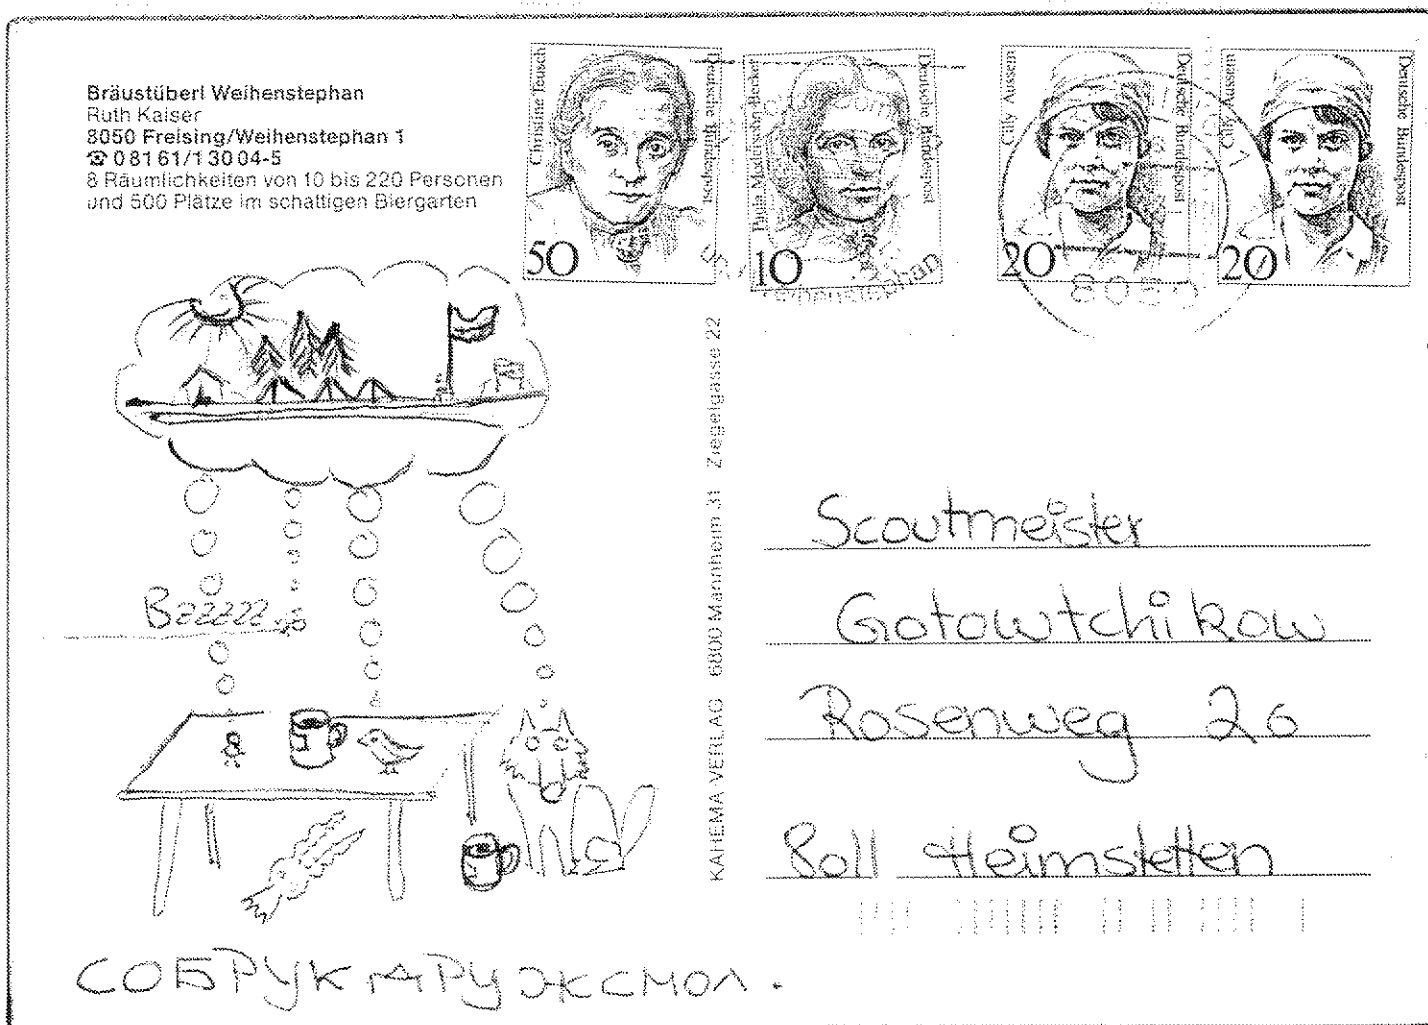 Bräustüberl Weihenstephan
Ruth Kaiser
8050 Freising/Weihenstephan 1
☎ 08161/13004-5
8 Räumlichkeiten von 10 bis 220 Personen
und 500 Plätze im schattigen Biergarten
Christine Teusch
Deutsche Bundespost
50
Paula Modersohn-Becker
Deutsche Bundespost
10
Cilly Aussem
Deutsche Bundespost
20
Cilly Aussem
Deutsche Bundespost
20
Weihenstephan
8050
KAHEMA VERLAG 6800 Mannheim 31 Ziegelgasse 22
Bzzzzz
Scoutmeister
Gotowtchikow
Rosenweg 26
8011 Heimstetten
СОБРУК ДРУЖСМОЛ.